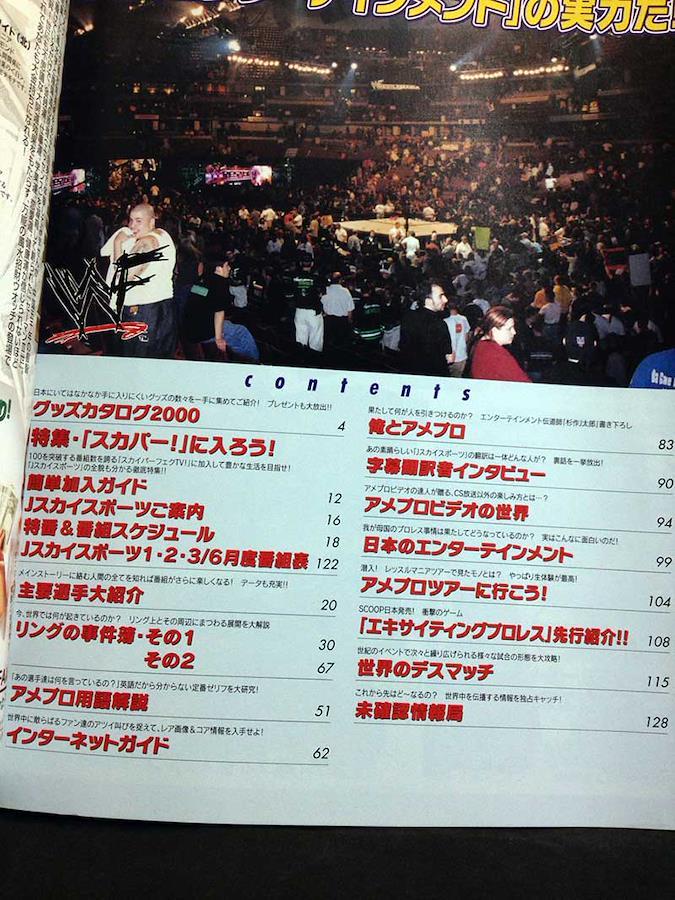 ーテインメント」の実力だ!
WF
contents
日本にいてはなかなか手に入りにくいグッズの数々を一手に集めてご紹介! プレゼントも大放出!!
グッズカタログ2000 4
特集・「スカパー!」に入ろう!
100を突破する番組数を誇る「スカイパーフェクTV!」に加入して豊かな生活を目指せ!
「Jスカイスポーツ」の全貌も分かる徹底特集!!
簡単加入ガイド 12
Jスカイスポーツご案内 16
特番&番組スケジュール 18
Jスカイスポーツ1・2・3/6月度番組表 122
メインストーリーに絡む人間の全てを知れば番組がさらに楽しくなる! データも充実!!
主要選手大紹介 20
今、世界では何が起きているのか? リング上とその周辺にまつわる展開を大解説
リングの事件簿・その1 30
その2 67
「あの選手達は何を言っているの?」英語だから分からない定番ゼリフを大研究!
アメプロ用語解説 51
世界中に散らばるファン達のアツイ叫びを捉えて、レア画像&コア情報を入手せよ!
インターネットガイド 62
果たして何が人を引きつけるのか? エンターテインメント伝道師「杉作J太郎」書き下ろし
俺とアメプロ 83
あの素晴らしい「Jスカイスポーツ」の翻訳は一体どんな人が? 裏話を一挙放出!
字幕翻訳者インタビュー 90
アメプロビデオの達人が贈る、CS放送以外の楽しみ方とは…?
アメプロビデオの世界 94
我が母国のプロレス事情は果たしてどうなっているのか? 実はこんなに面白いのだ!
日本のエンターテインメント 99
潜入! レッスルマニアツアーで見たモノとは? やっぱり生体験が最高!
アメプロツアーに行こう! 104
SCOOP日本発売! 衝撃のゲーム
「エキサイティングプロレス」先行紹介!! 108
世紀のイベントで次々と繰り広げられる様々な試合の形態を大攻略!
世界のデスマッチ 115
これから先はど〜なるの? 世界中を伝播する情報を独占キャッチ!
未確認情報局 128